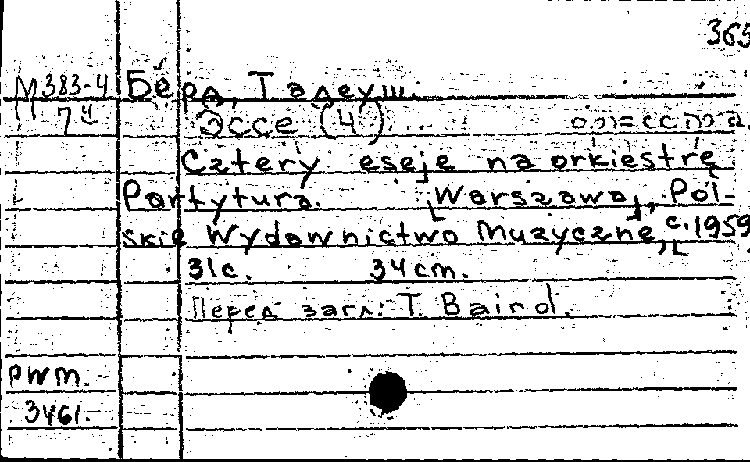 365
М 383-4 Бэрд, Тадеуш.
7ч Эссе (4)
Cztery eseje na orkiestrę.
Partytura. [Warszawa], Pol-
skie Wydawnictwo Muzyczne, c. 1959
31c. 34cm.
Перед загл: T. Baird.
PWM.
3461.